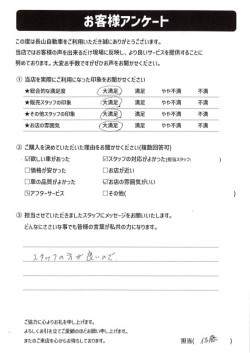 お客様アンケート
この度は長山自動車をご利用いただき誠にありがとうございます。
当店ではお客様の声を出来るだけ現場に反映し、より良いサービスを提供することに
努めております。大変お手数ですがぜひお声をお聞かせください。
① 当店を実際にご利用になった印象をお聞かせください
★総合的な満足度 大満足 満足 やや不満 不満
★販売スタッフの印象 大満足 満足 やや不満 不満
★その他スタッフの印象 大満足 満足 やや不満 不満
★お店の雰囲気 大満足 満足 やや不満 不満
② ご購入を決めていただいた理由をお聞かせください(複数回答可)
☑欲しい車があった ☑スタッフの対応がよかった(担当スタッフ)
□価格が安かった □お店が近い
□車の品質がよかった ☑お店の雰囲気がいい
☑アフターサービス □その他( )
③ 担当させていただきましたスタッフにメッセージをお願いいたします。
どんなにささいな事でも皆様の言葉が私共の力になります。
スタッフの方が良いので
ご協力に心よりお礼を申し上げます。
よろしくお引き立てご愛顧のほどお願い申し上げます。
またのご来店を心からお待ちしております。
担当( )